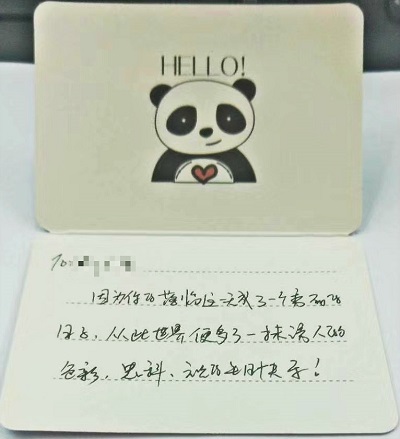 HELLO!
To:
因为你的莅临这一天成了一个重要的
日子，从此世界便多了一抹诱人的
色彩，思科，元的生日快乐！